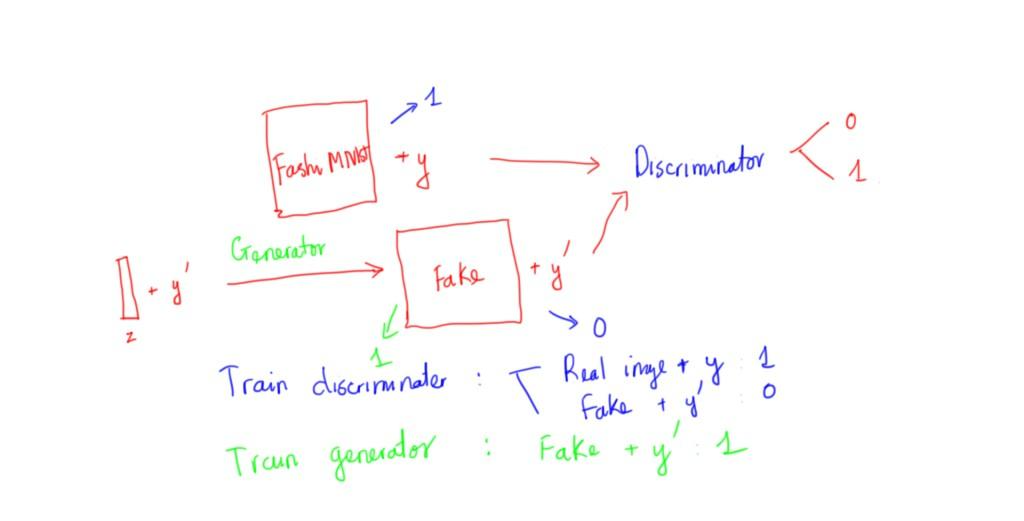 1
Fashn MNIST + y
Discriminator
0
1
Generator
z + y'
Fake + y'
0
1
Train discriminater : Real image + y : 1
Fake + y' : 0
Train generator : Fake + y' : 1